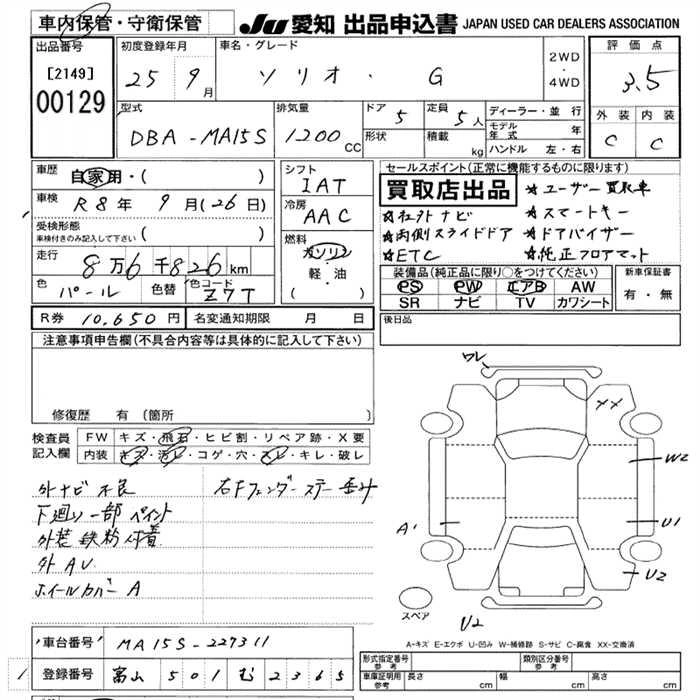 車内保管・守衛保管
JU 愛知 出品申込書 JAPAN USED CAR DEALERS ASSOCIATION
出品番号
[2149]
00129
初度登録年月
25 9月
車名・グレード
ソリオ・ G
2WD
・
4WD
評価点
3.5
外装 内装
C C
型式
DBA-MA15S
排気量
1200 CC
ドア 5
形状
定員 5人
積載 kg
ディーラー・並行
モデル年式 年
ハンドル 左・右
車歴
自家用・( )
車検 R8年 9月(26日)
受検形態
車検付きのみ記入して下さい ( )
走行 8万6千826km
色 パール 色替 色コード Z7T
シフト
IAT
冷房
AAC
燃料
ガソリン
軽・油
( )
セールスポイント(正常に機能するものに限ります)
買取店出品
☆ユーザー買取車
☆社外ナビ ☆スマートキー
☆両側スライドドア ☆ドアバイザー
☆ETC ☆純正フロアマット
装備品(純正品に限り○をつけてください)
PS PW エアB AW
SR ナビ TV カワシート
新車保証書
有・無
R券 10,650円 名変通知期限 月 日
後日品
注意事項申告欄(不具合内容等は具体的に記入して下さい)
修復歴 有(箇所 )
検査員記入欄
FW キズ・飛石・ヒビ割・リペア跡・X要
内装 キズ・汚レ・コゲ・穴・スレ・キレ・破レ
外ナビ不良
右Fフェンダーステー歪み
下廻り一部ペイント
外装鉄粉付着
外AV
ホイールカバーA
ワレ
XX
W2
A1
U1
U2
スペア
U2
A-キズ E-エクボ U-凹み W-補修跡 S-サビ C-腐食 XX-交換済
車台番号 MA15S-227311
登録番号 富山 501 む 2365
形式指定番号 参考
類別区分番号 参考
車庫証明用 参考 長さ cm 幅 cm 高さ cm